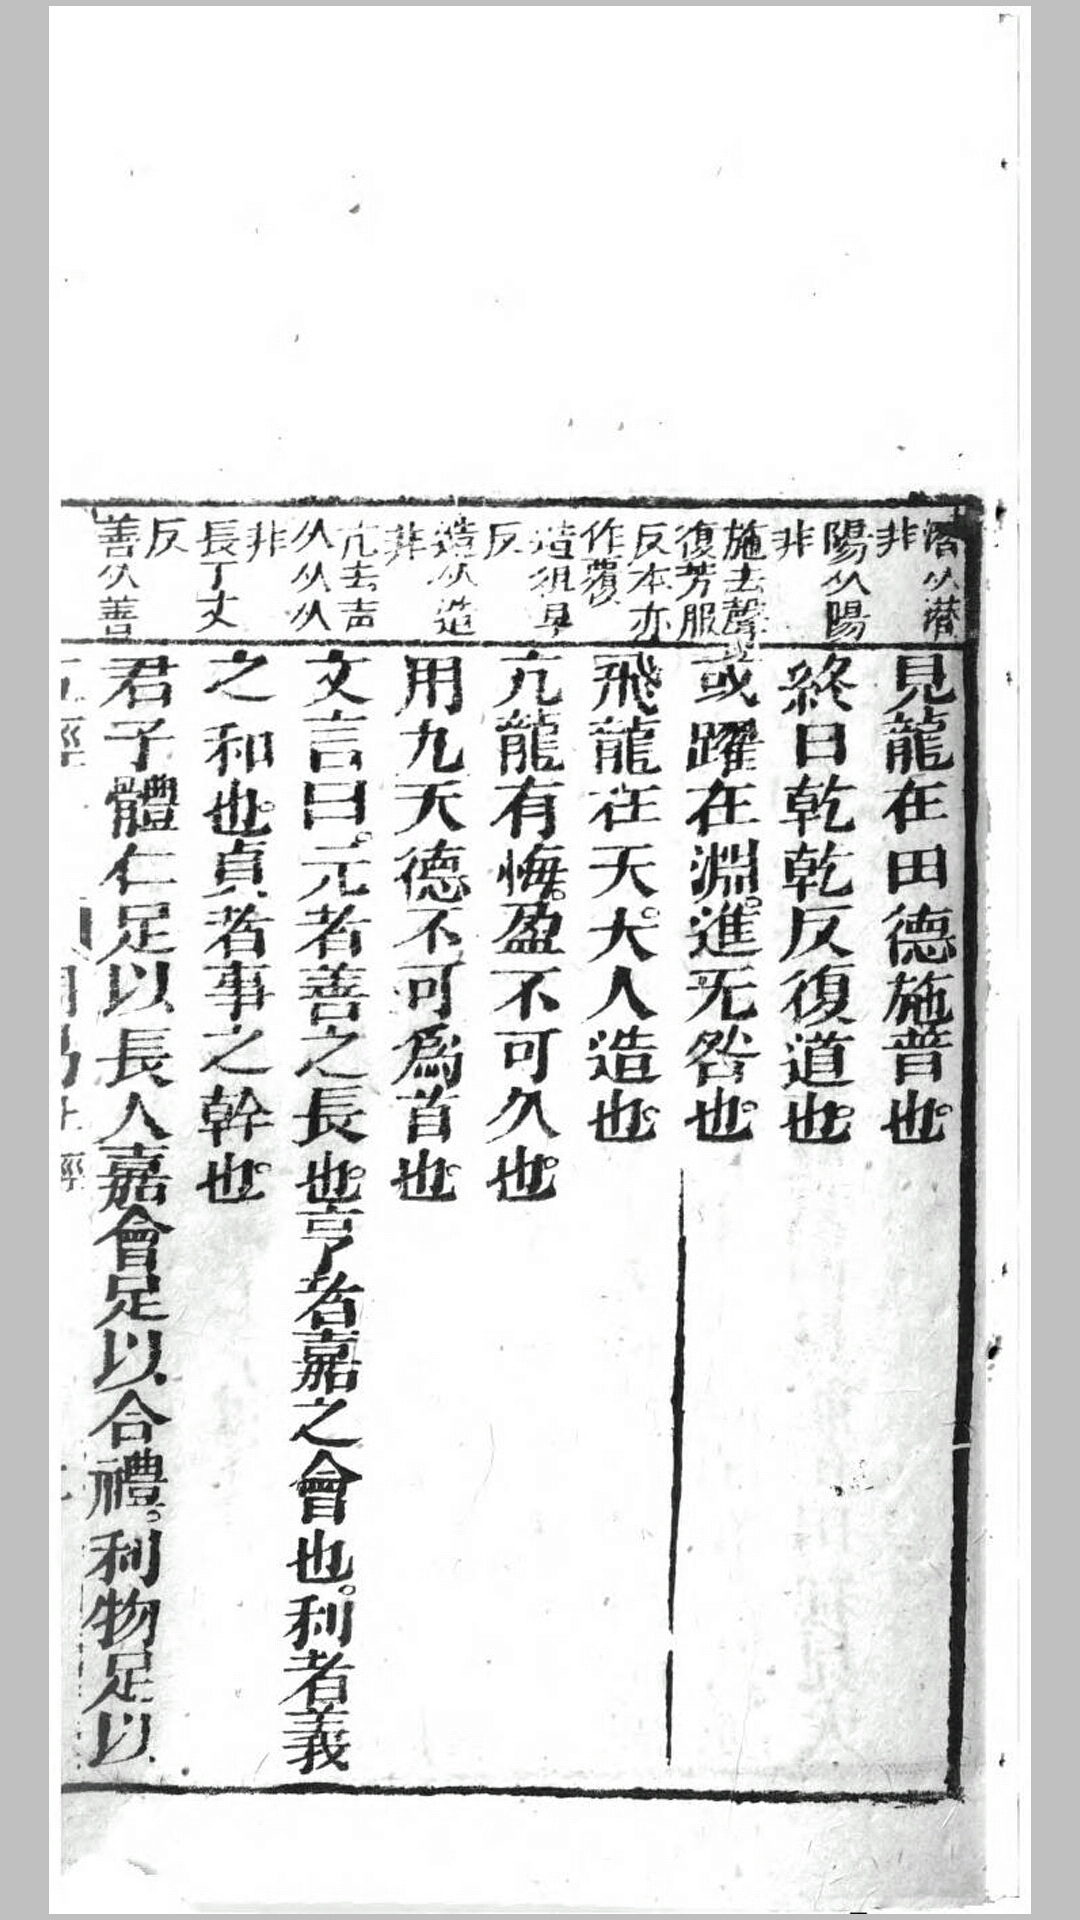 潛从潜
非
陽从陽
非
施去聲
復芳服
反本亦
作覆
造徂早
反
造从造
非
亢去声
从从从
非
長丁丈
反
善从善
見龍在田德施普也。
終日乾乾反復道也。
或躍在淵。進无咎也。
飛龍在天。大人造也。
亢龍有悔。盈不可久也。
用九天德不可爲首也。
文言曰。元者善之長也。亨者嘉之會也。利者義
之和也。貞者事之幹也。
君子體仁足以長人嘉會足以合禮。利物足以